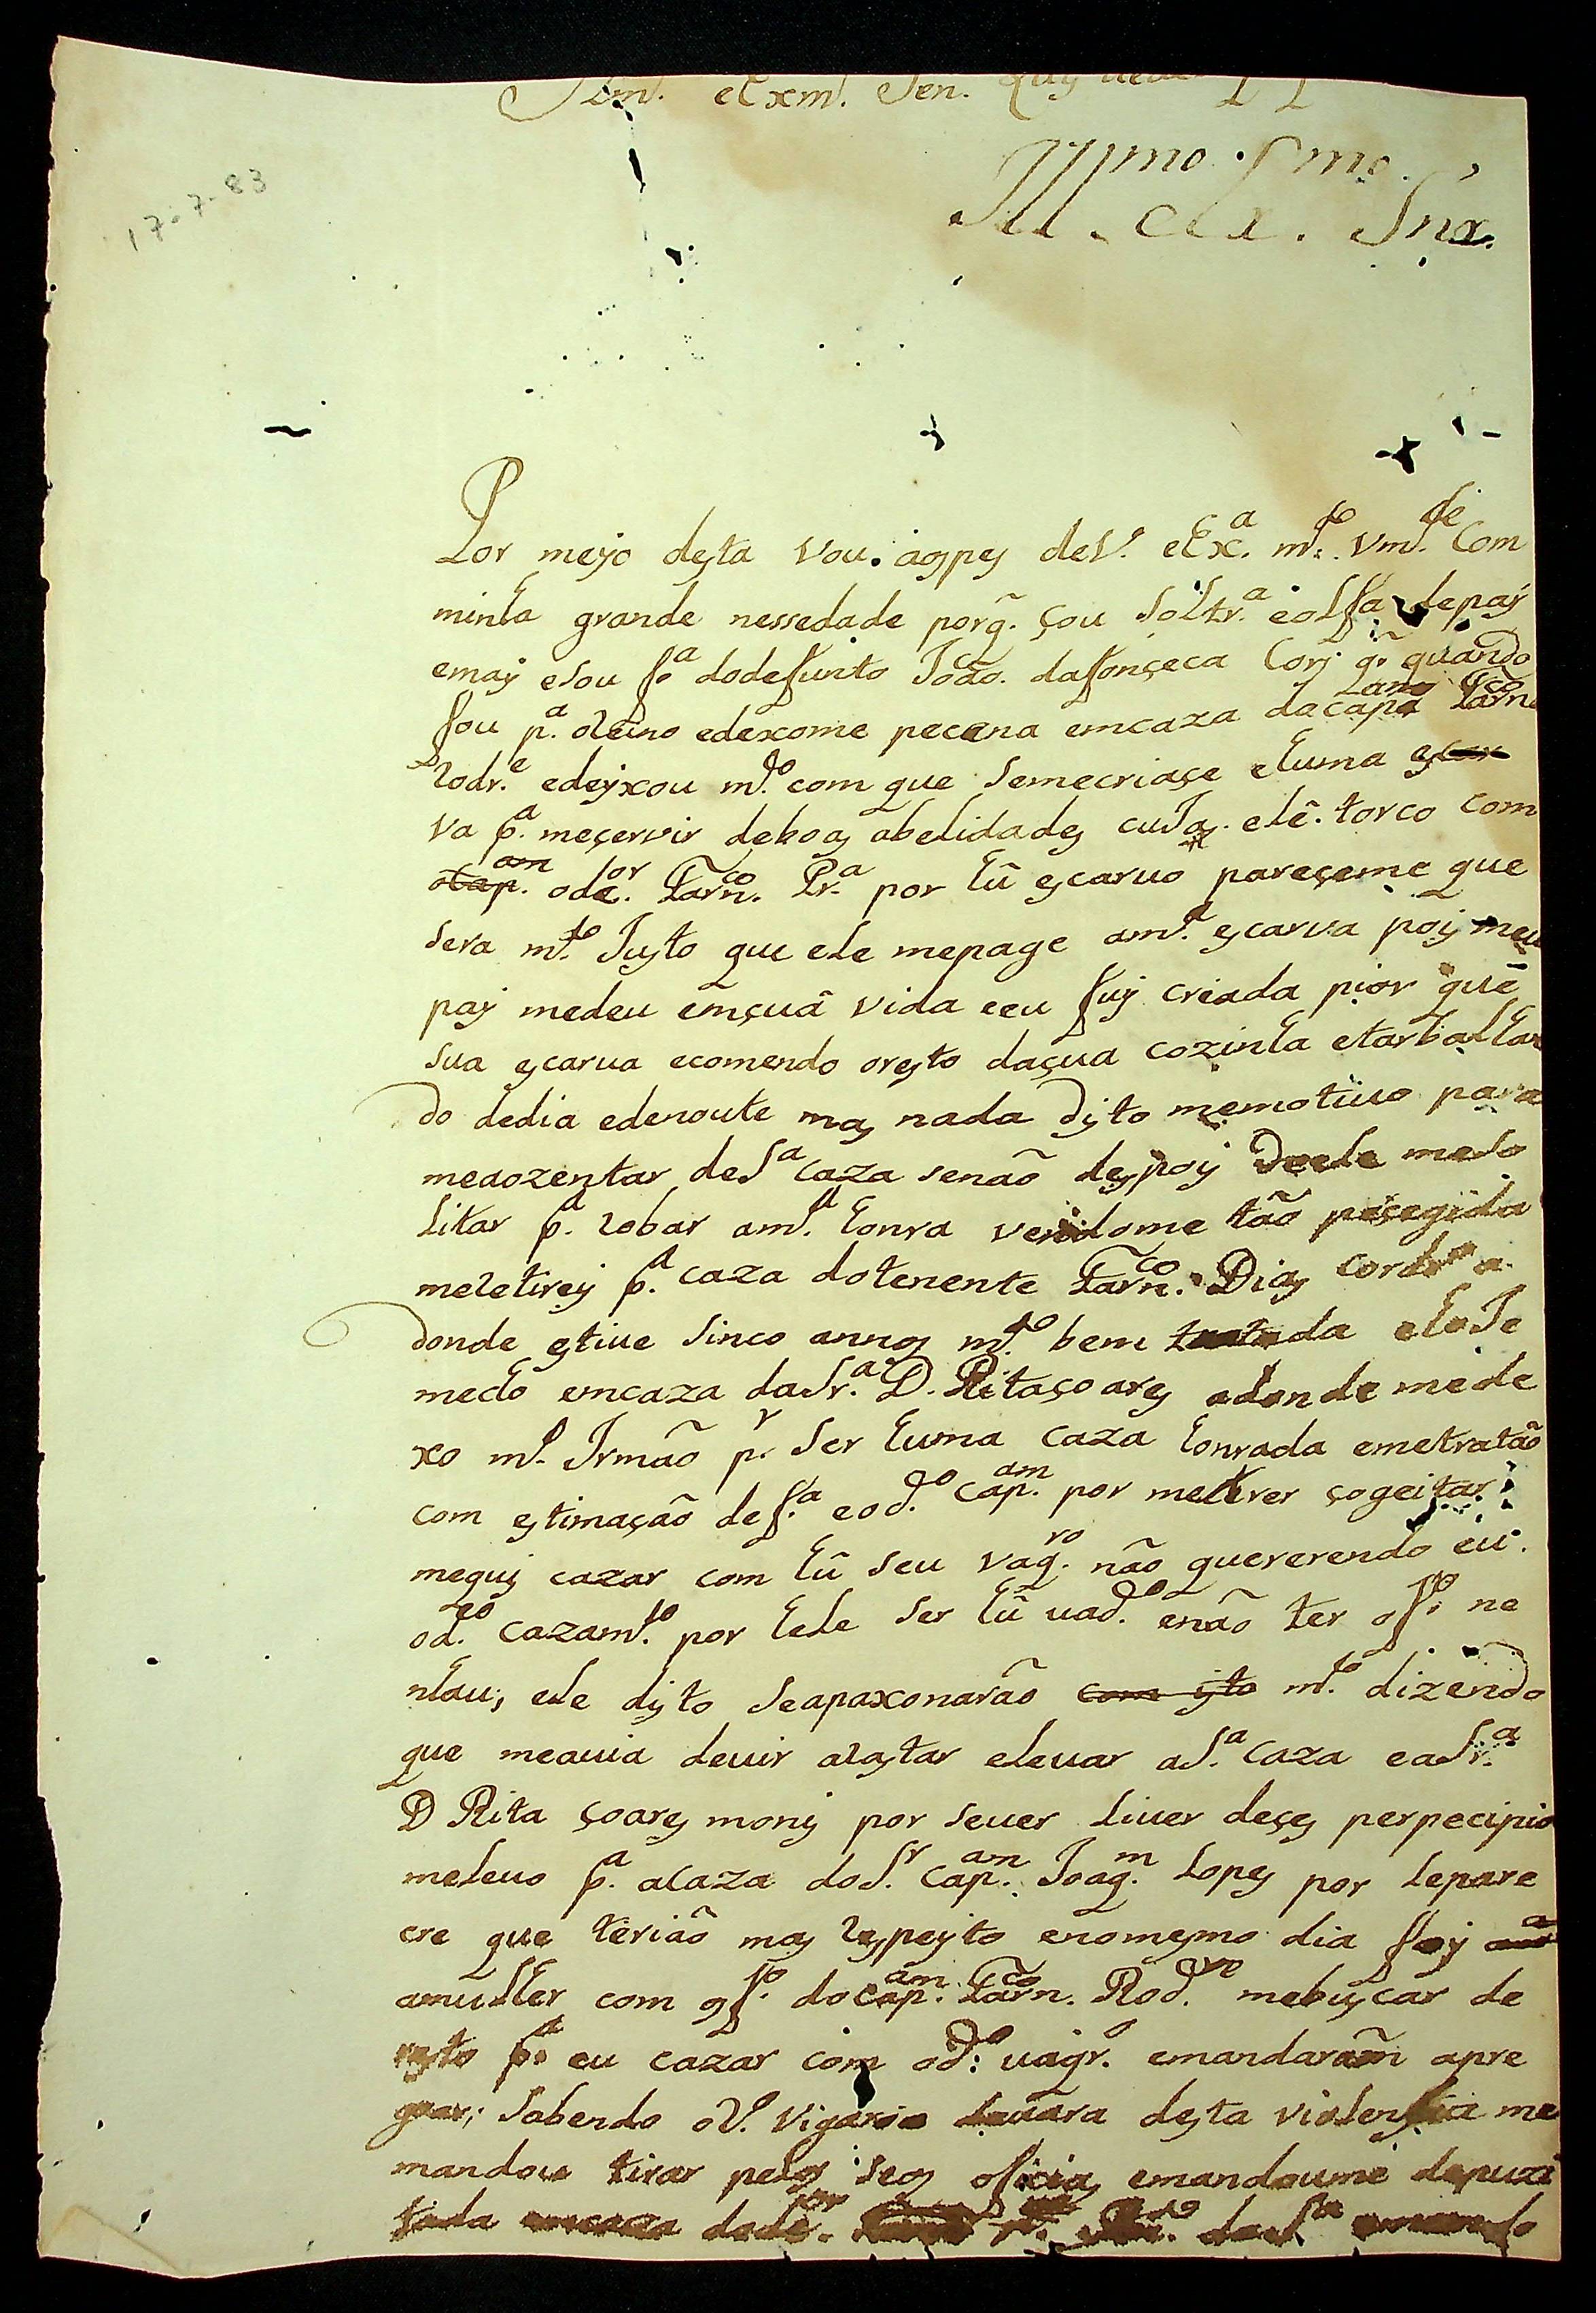 Ilm.º eExm.º Sen.
17-7-83
Ill.mo eEx.mo Snr.
Por mejo desta vou. aospes deV. eExª. m.to vm.de Com
minha grande nessedade porq̃. çou Soltr.ª eolfa depaj
emaj eSou f.ª dodefunto João. dafonçeca Corj q.̃ quando
fou p.ª oReino edexome pecena emcaza docap.am Farn.co
Rodr.e edejxou m.to com que Semecriaçe ehuma escar
va p.ª meçervir deboas abelidades cuJas. elê. torco com
ocap.am ode.or Farn.co Pr.ª por hũ escarvo pareçeme que
Sera m.to Justo que ele mepage am.ª escarva pois meu
paj medeu emçuâ vida eeu fuj criada pior quẽ
Sua escarua ecomendo oresto daçua cozinha etarbalhan
do dedia edenoute mas nada disto memotiuo para
meaozentar deS.ª caza senão despois deele meso
litar p.ª Robar am.ª honra vendome tão persegida
meRetirej p.ª caza dotenente Farn.co Dias Cordr.º a
donde estiue Sinco annos m.to bem tratada eloJe
mecho emcaza daSr.ª D. Ritaçoares adonde mede
xo m.º Irmão p.r Ser huma caza honrada emetratão
com estimação def.ª eod.º Cap.am por metrer çogeitar
mequis cazar com hũ seu vaq.ro não quererendo eu
od.to Cazam.to por hele Ser hũ uad.º enão ter of.º ne
nhau; ele disto Seapaxonarão com isto m.to dizendo
que meauia devir aRastar eleuar aS.ª Caza eaSr.ª
D Rita çoares monis por Sever Liuer deçes perpecipio
meleuo p.ª aCaza doS.r Cap.am Joaq.m Lopes por lepare
cre que terião mas Respejto enomesmo dia foj
amulher com of.º docap.am Farn.co Rod. mebuscar de
resto p.ª eu cazar com od.º uaqr.º emandaram apre
goar; Sabendo oR.do Vigario desta violensia me
mandou tirar pelos seos oficiais emandoume depuzi
tada emcaza dode.or